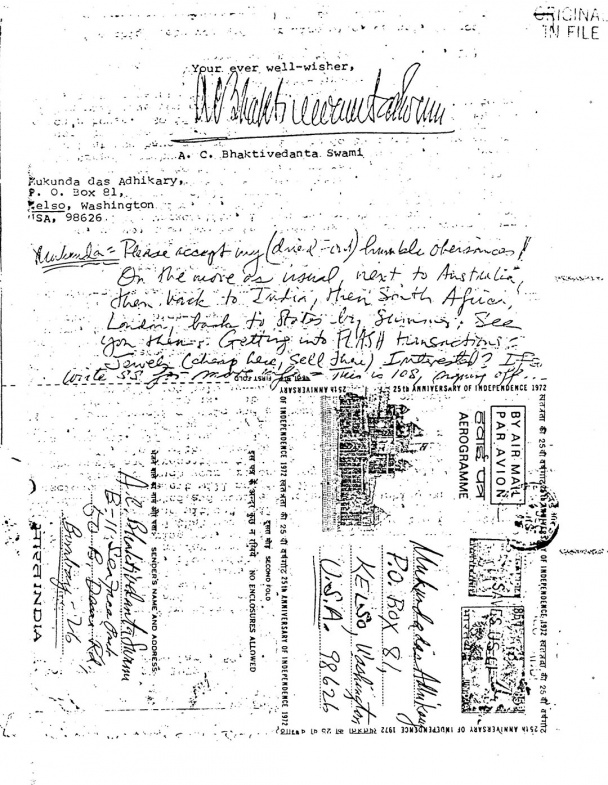 ORIGINAL
IN FILE
Your ever well-wisher,
A. C. Bhaktivedanta Swami
Mukunda das Adhikary,
P. O. Box 81,
Kelso, Washington
USA, 98626
Mukunda = Please accept my (dried-out) humble obeisances!
On the move as usual, next to Australia,
then back to India, then South Africa,
London, back to States by Summer. See
you then. Getting into FLASH transactions -
Jewels (cheap here, sell there) Interested? If so
write SS. for more info - This is 108, signing off.
FIRST FOLD
25th ANNIVERSARY OF INDEPENDENCE 1972
स्वतंत्रता की 25 वीं वर्षगांठ
BY AIR MAIL
PAR AVION
हवाई पत्र
AEROGRAMME
Mukunda das Adhikary
P.O. BOX 81,
KELSO, Washington
U.S.A. 98626
दूसरा मोड़ SECOND FOLD
NO ENCLOSURES ALLOWED
SENDER'S NAME AND ADDRESS:
A.C. Bhaktivedanta Swami
Bombay-26
भारत INDIA